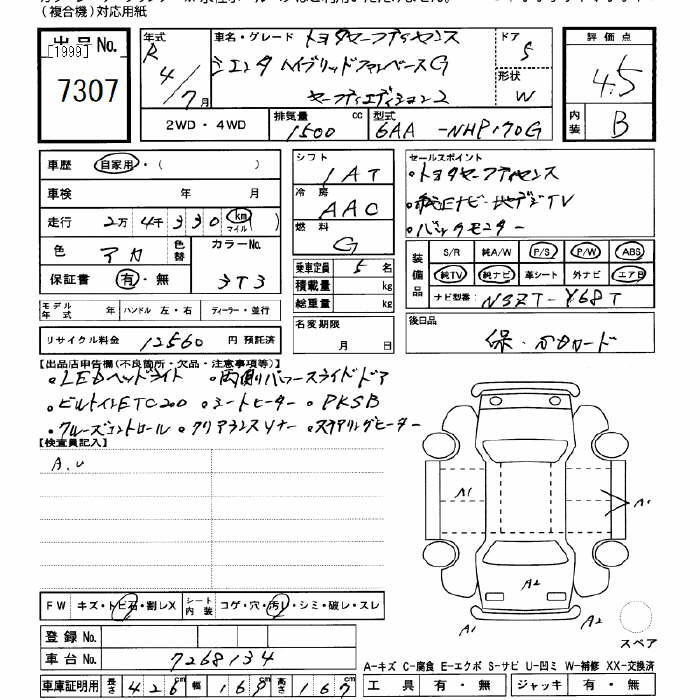 (複合機)対応用紙
出品No.
[1999]
7307
年式 R4/7月
車名・グレード トヨタセーフティセンス
シエンタ ハイブリッドファンベースG
セーフティエディション2
ドア 5
形状 W
評価点 4.5
内装 B
2WD・4WD
排気量 1500 cc
型式 6AA-NHP170G
車歴 自家用・( )
車検 年 月
走行 2万4千330 km マイル
色 アカ 色替
カラーNo. 3T3
保証書 有・無
シフト IAT
冷房 AAC
燃料 G
乗車定員 5名
積載量 kg
総重量 kg
セールスポイント
・トヨタセーフティセンス
・純正ナビ・地デジTV
・バックモニター
装備品 S/R 純A/W P/S P/W ABS
純TV 純ナビ 革シート 外ナビ エアB
ナビ型番: NSZT-Y68T
モデル年式 年 ハンドル 左・右 ディーラー・並行
リサイクル料金 12560 円 預託済
名変期限 月 日
後日品 保・
【出品店申告欄(不良箇所・欠品・注意事項等)】
・LEDヘッドライト ・両側パワースライドドア
・ビルトインETC2.0 ・シートヒーター ・PKSB
・クルーズコントロール ・クリアランスソナー ・ステアリングヒーター
【検査員記入】
A.U
A1
A1
A2
A1
A2
FW キズ・トビ石・割レX シート内装 コゲ・穴・汚レ・シミ・破レ・スレ
スペア
登録No.
車台No. 7268134
A-キズ C-腐食 E-エクボ S-サビ U-凹ミ W-補修 XX-交換済
車庫証明用 長さ 426cm 幅 169cm 高さ 167cm
工具 有・無 ジャッキ 有・無